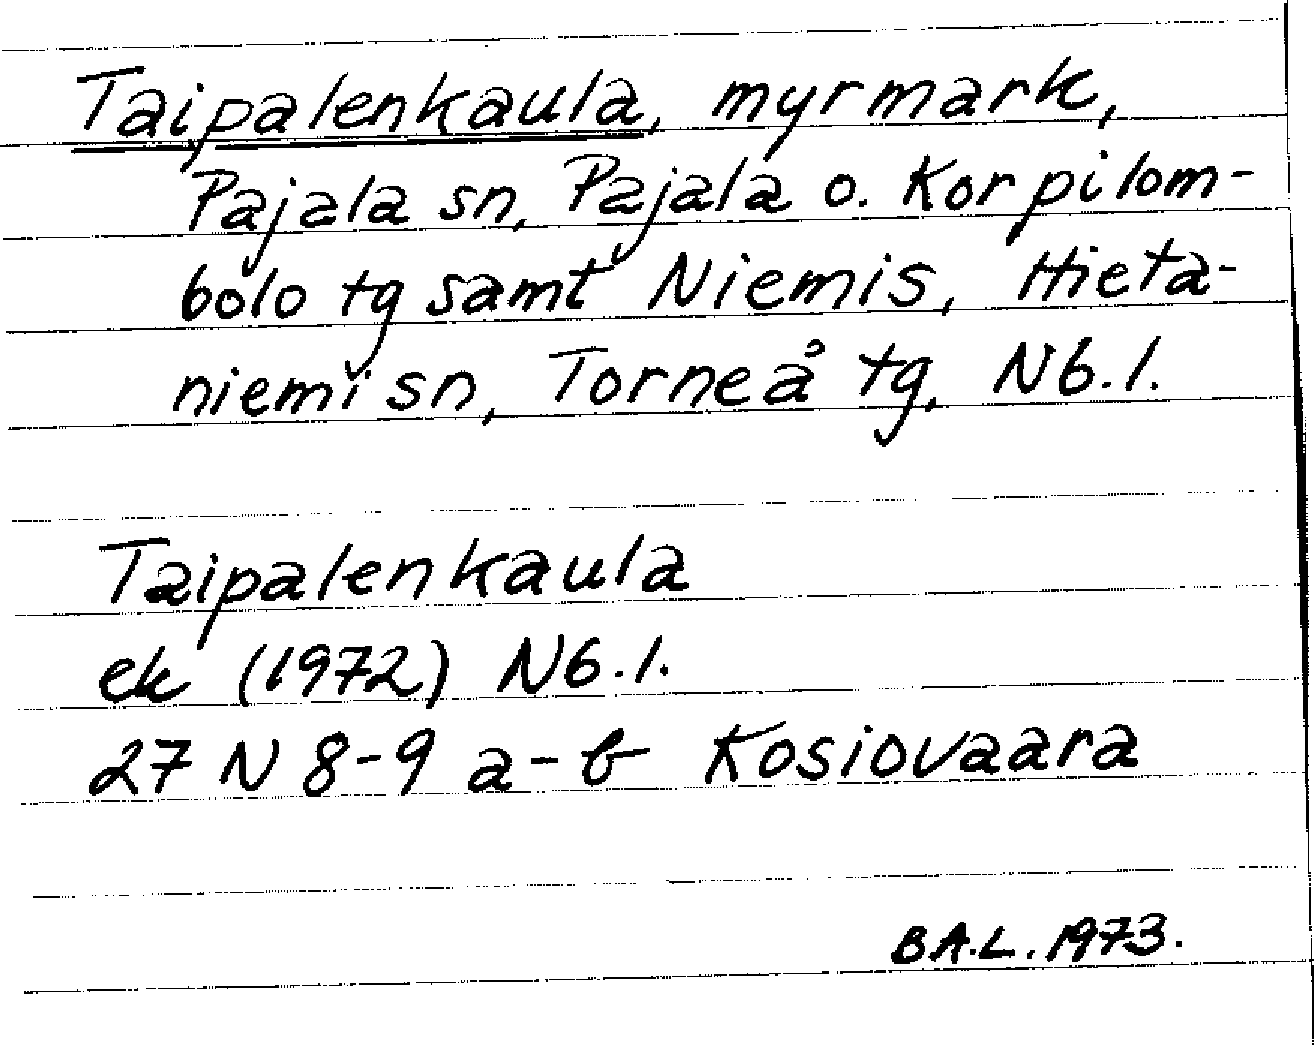 Taipalenkaula, myrmark,
Pajala sn, Pajala o. Korpilom-
bolo tg samt Niemis, Hieta-
niemi sn, Torneå tg, Nb.l.
Taipalenkaula
ek (1972) Nb.l.
27 N 8-9 a-b Kosiovaara
B.A.L. 1973.